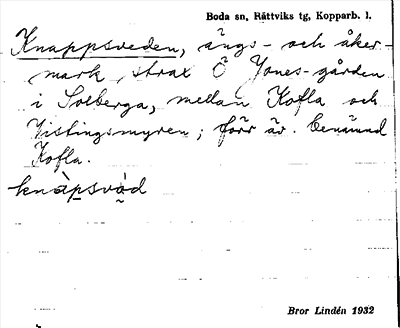 Boda sn, Rättviks tg, Kopparb. l.
Knappsveden, ängs- och åker-
mark, strax Ö Jones-gården
i Solberga, mellan Kofla och
Vistingsmyren; förr äv. benämnd
Kofla.
Bror Lindén 1932